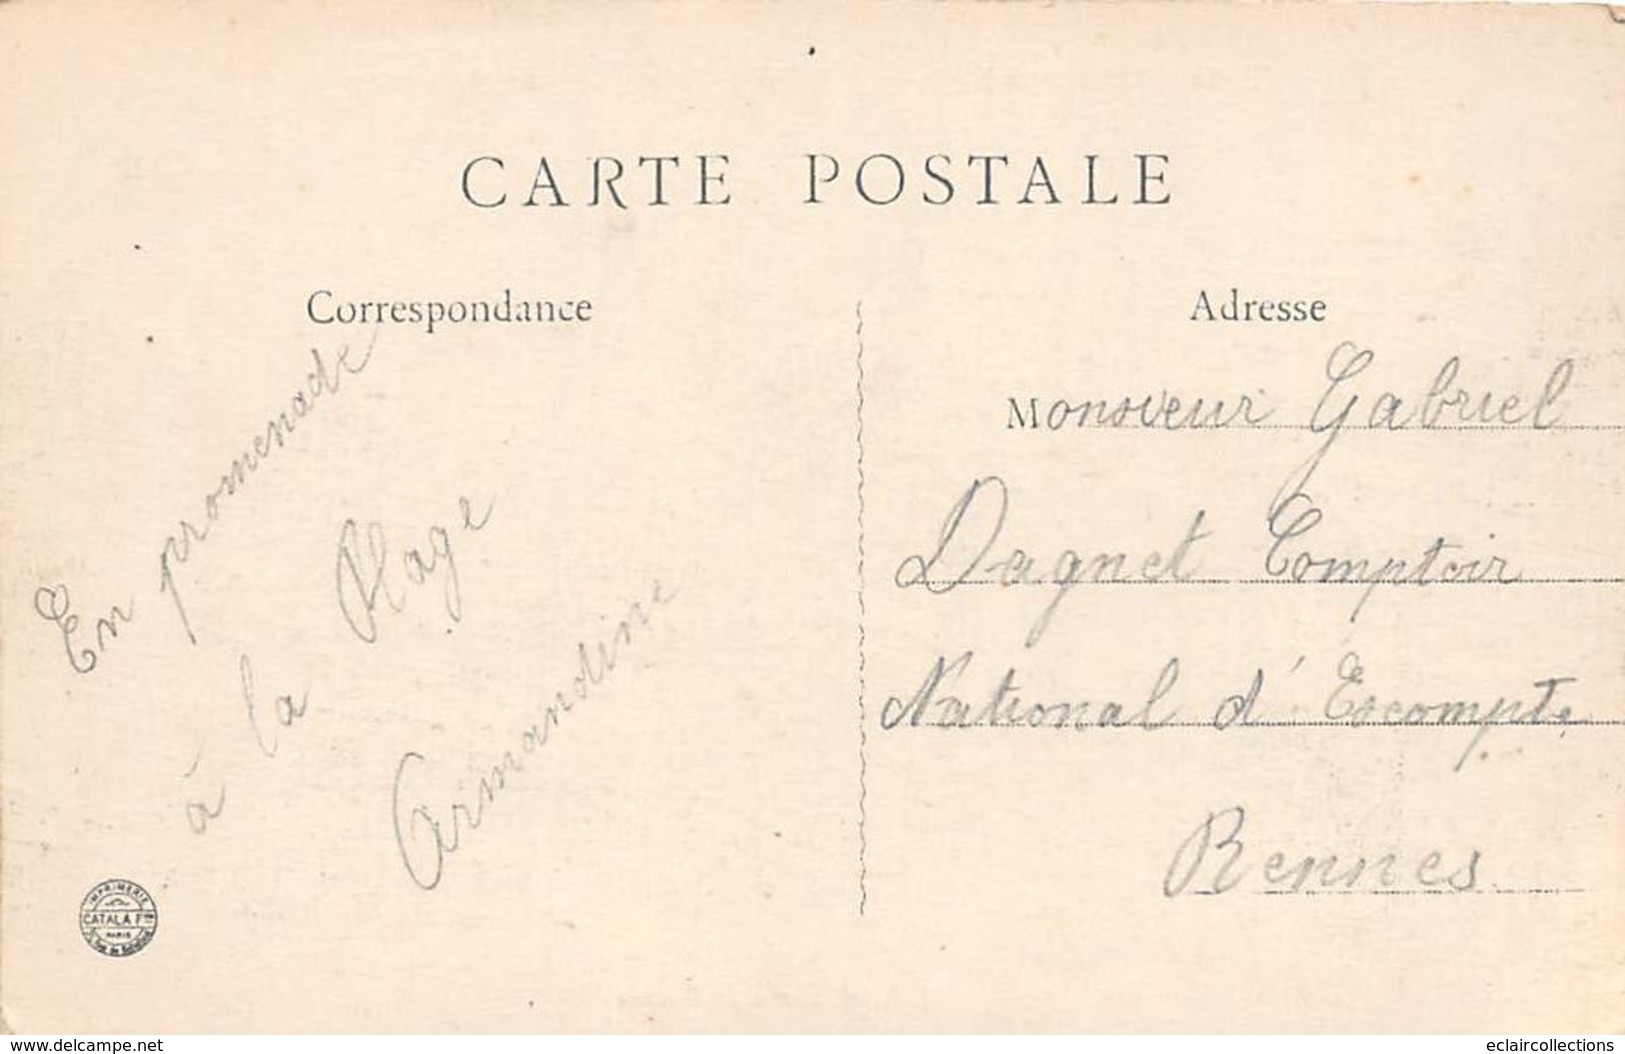 CARTE POSTALE
Correspondance
En promenade
à la Plage
Armandine
IMPRIMERIE
CATALA Frs
PARIS
Adresse
Monsieur Gabriel
Dagnet Comptoir
National d'Escompte
Rennes
www.delcampe.net
eclaircollections